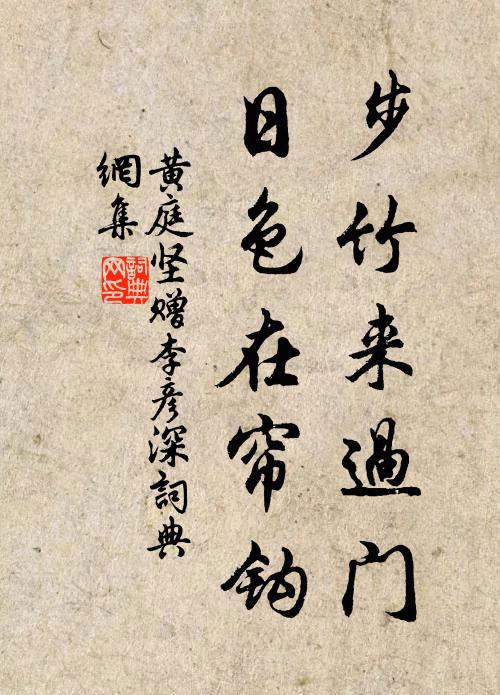 步竹来過门
日色在帘钩
黄庭坚赠李彦深詞典
網集
詞典
网印